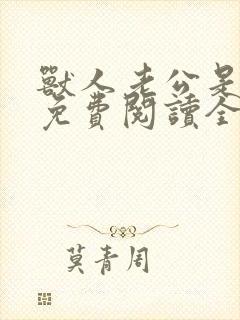 獸人老公是
免費閱讀全
莫青周